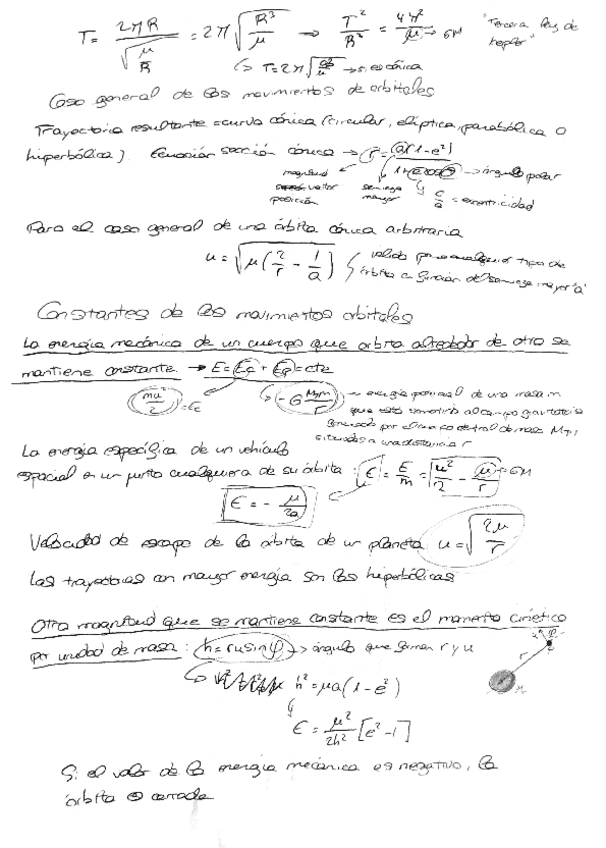 T = 2πR / √(μ/R) = 2π √(R³/μ) → T²/R³ = 4π²/μ → GM "Tercera ley de kepler"
↳ T = 2π √(a³/μ) →
Caso general de los movimientos de orbitales
Trayectoria resultante = curva cónica (circular, elíptica, parabólica o
hiperbólica). Ecuación sección cónica → r = a(1-e²) / 1+e cosθ → ángulo polar
magnitud vector posición semieje mayor c/a = excentricidad
Para el caso general de una órbita cónica arbitraria
u = √(μ(2/r - 1/a)) válido para cualquier tipo de
órbita en función del semieje mayor "a"
Constantes de los movimientos orbitales
La energía mecánica de un cuerpo que orbita alrededor de otro se
mantiene constante → E = Ec + Ep = cte
mu²/2 = Ec -G Mm/r → energía potencial de una masa m
que está sometida al campo gravitatorio
generado por el cuerpo central de masa M
situado a una distancia r
La energía específica de un vehículo
espacial en un punto cualquiera de su órbita : ε = E/m = u²/2 - μ/r → GM
ε = - μ/2a
Velocidad de escape de la órbita de un planeta u = √(2μ/r)
Las trayectorias con mayor energía son las hiperbólicas
Otra magnitud que se mantiene constante es el momento cinético
por unidad de masa : h = r u sin φ → ángulo que forman r y u
↳ h² = μa(1-e²)
ε = μ²/2h² [e²-1]
Si el valor de la energía mecánica es negativo, la
órbita es cerrada